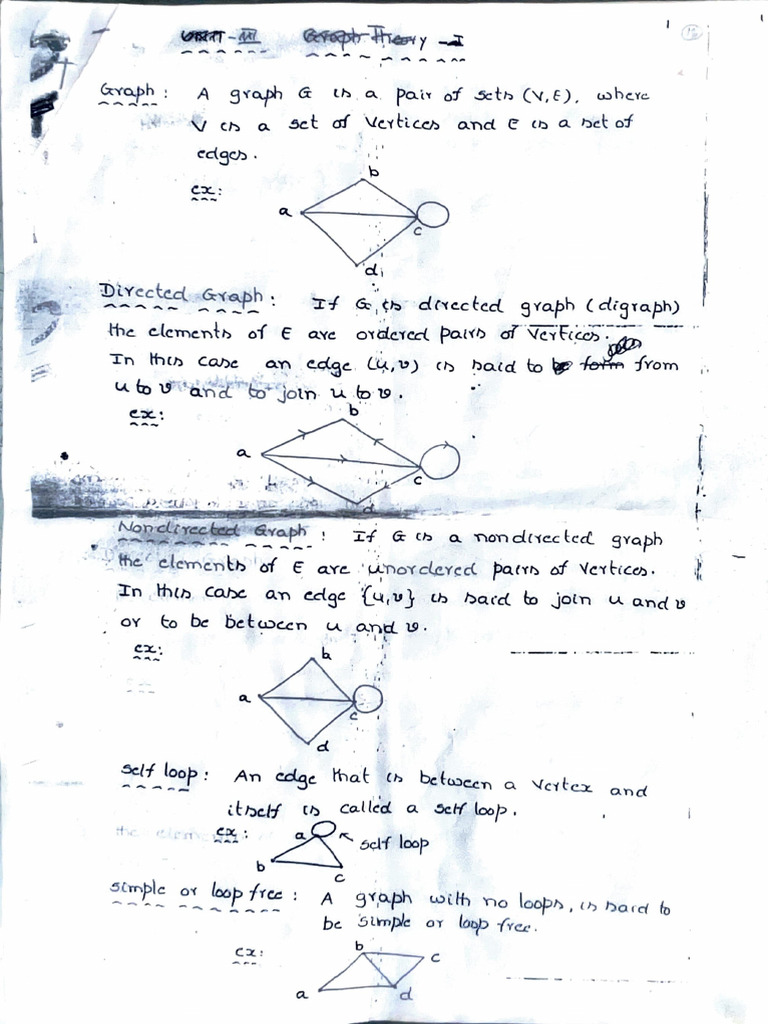 UNIT-III Graph Theory-I
Graph: A graph G is a pair of sets (V,E), where
V is a set of vertices and E is a set of
edges.
ex:
b
a
c
d
Directed Graph: If G is directed graph (digraph)
the elements of E are ordered pairs of vertices.
In this case an edge (u,v) is said to from
u to v and to join u to v.
ex:
b
a
c
d
Nondirected Graph: If G is a nondirected graph
the elements of E are unordered pairs of vertices.
In this case an edge {u,v} is said to join u and v
or to be between u and v.
ex:
b
a
c
d
self loop: An edge that is between a vertex and
itself is called a self loop.
ex:
a self loop
b
c
simple or loop free: A graph with no loops, is said to
be simple or loop free.
ex:
b c
a d